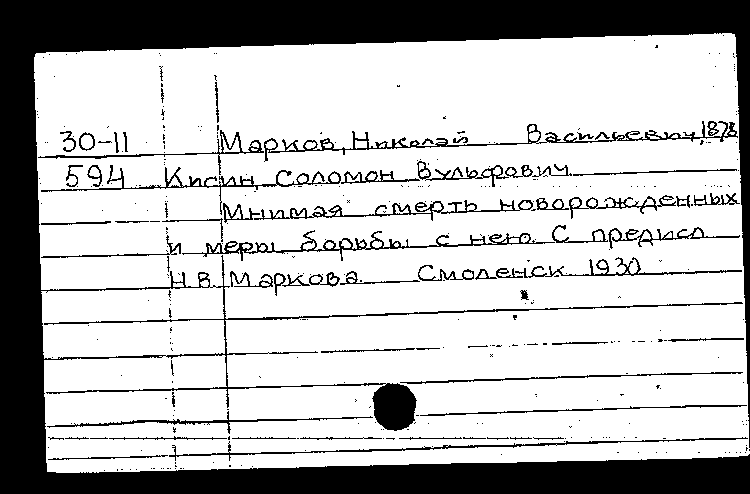 30-11 Марков, Николай Васильевич, 1878
594 Кисин, Соломон Вульфович
Мнимая смерть новорожденных
и меры борьбы с нею. С предисл.
Н.В. Маркова. Смоленск 1930